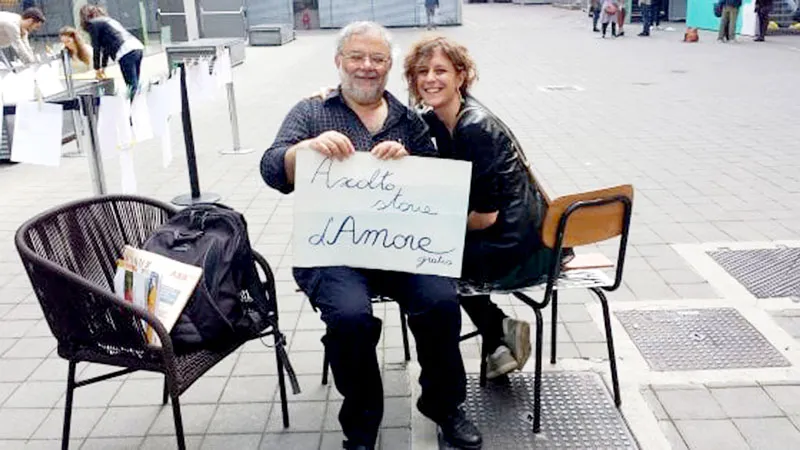 Ascolto
storie
d'Amore
gratis
ABB